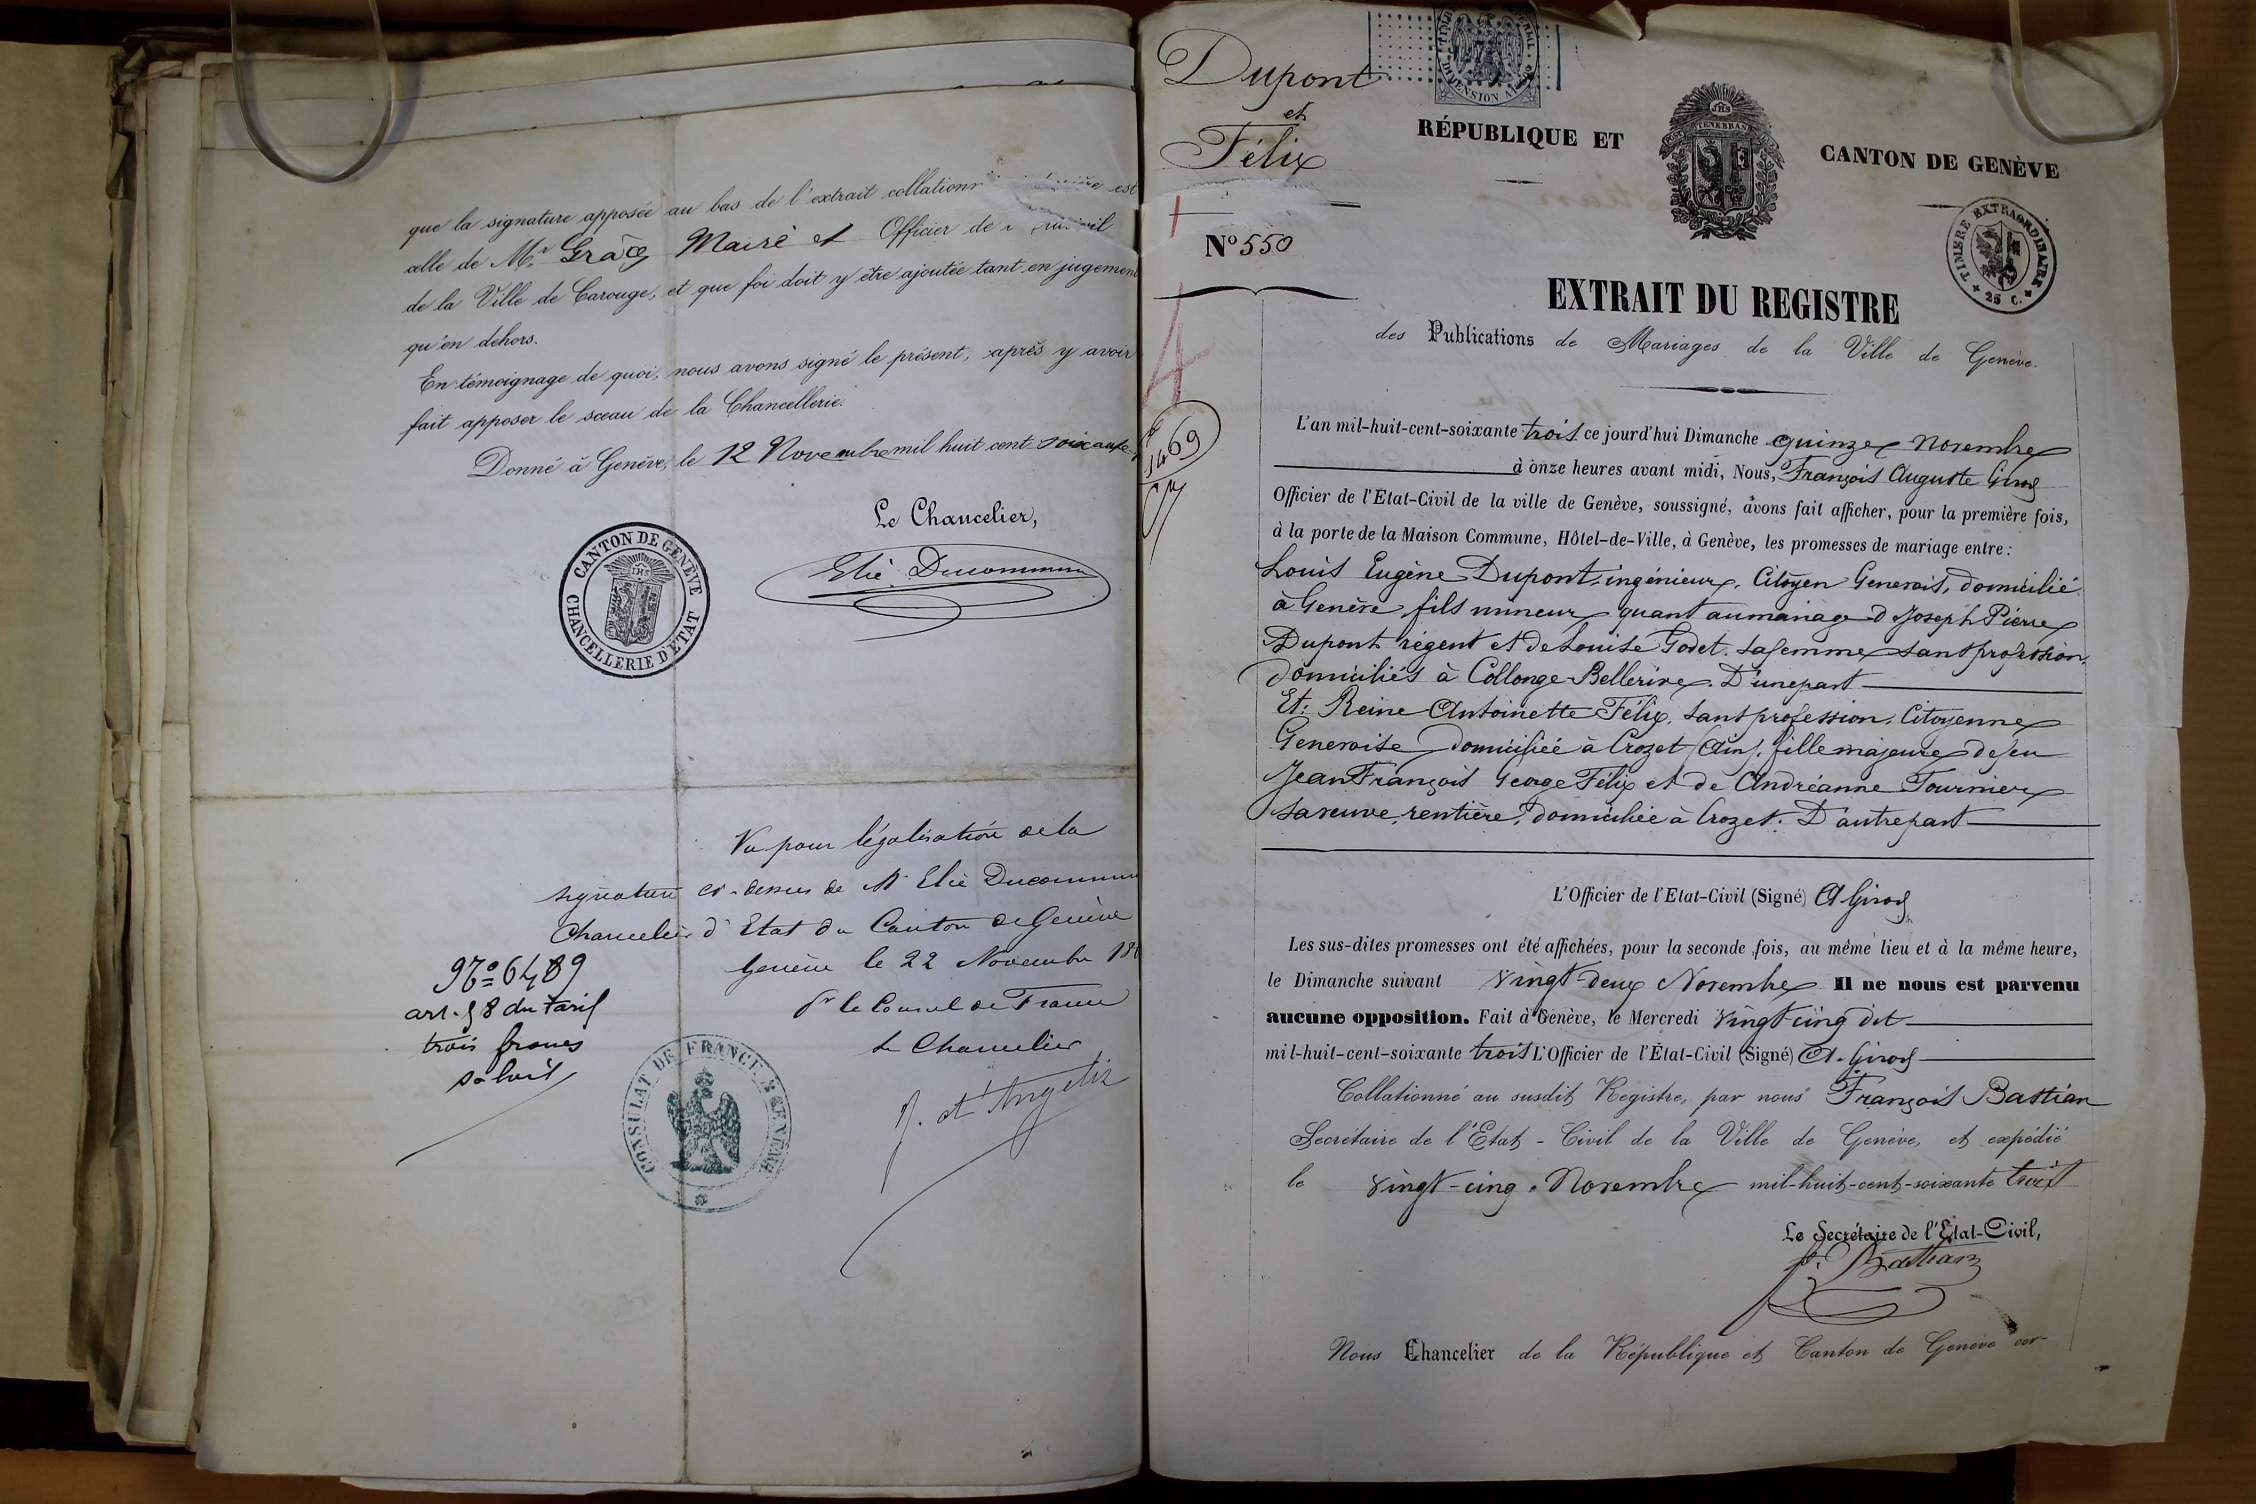 que la signature apposée au bas de l'extrait collationn est
celle de Mr. Mairé et Officier de
de la Ville de Carouge, et que foi doit y être ajoutée tant en jugement
qu'en dehors.
En témoignage de quoi, nous avons signé le présent, après y avoir
fait apposer le sceau de la Chancellerie.
Donné à Genève, le 12 Novembre mil huit cent soixante
Le Chancelier,
Elie Ducommun
CANTON DE GENEVE
CHANCELLERIE D'ETAT
Vu pour légalisation de la
signature ci-dessus de Mr Elie Ducommun
Chancelier d'Etat du Canton de Genève
Genève le 22 Novembre 186
Pr le Consul de France
Le Chancelier
J. d'Angelis
No 6489
art. 58 du tarif
trois francs
CONSULAT DE FRANCE À GENÈVE
Dupont
et
Félix
No 550
1469
RÉPUBLIQUE ET CANTON DE GENÈVE
JHS
TENEBRAS
DIMENSION
TIMBRE EXTRAORDINAIRE
25 C.
EXTRAIT DU REGISTRE
des Publications de Mariages de la Ville de Genève.
L'an mil-huit-cent-soixante trois ce jourd'hui Dimanche quinze Novembre
à onze heures avant midi, Nous, François Auguste Girod
Officier de l'État-Civil de la ville de Genève, soussigné, avons fait afficher, pour la première fois,
à la porte de la Maison Commune, Hôtel-de-Ville, à Genève, les promesses de mariage entre:
Louis Eugène Dupont, ingénieur, Citoyen Genevois, domicilié
à Genève fils mineur quant au mariage d Joseph Pierre
Dupont régent et de Louise Godet sa femme sans profession,
domiciliés à Collonge-Bellerive. D'une part
Et: Reine Antoinette Félix, sans profession, Citoyenne
Genevoise domiciliée à Crozet (Ain), fille majeure de feu
Jean François George Félix et de Andréanne Tournier
sa veuve, rentière, domiciliée à Crozet. D'autre part
L'Officier de l'Etat-Civil (Signé) A Girod
Les sus-dites promesses ont été affichées, pour la seconde fois, au même lieu et à la même heure,
le Dimanche suivant vingt-deux Novembre Il ne nous est parvenu
aucune opposition. Fait à Genève, le Mercredi vingt cinq dit
mil-huit-cent-soixante trois L'Officier de l'État-Civil (Signé) A. Girod
Collationné au susdit Registre, par nous François Bastian
Secrétaire de l'Etat-Civil de la Ville de Genève, et expédié
le vingt-cinq Novembre mil-huit-cent-soixante trois
Le Secrétaire de l'Etat-Civil,
F. Bastian
Nous Chancelier de la République et Canton de Genève cer-